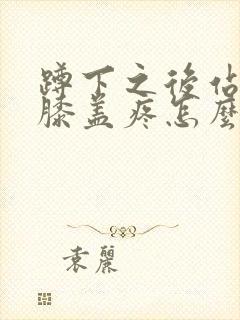 蹲下之後佔
膝盖疼怎麼
袁麗